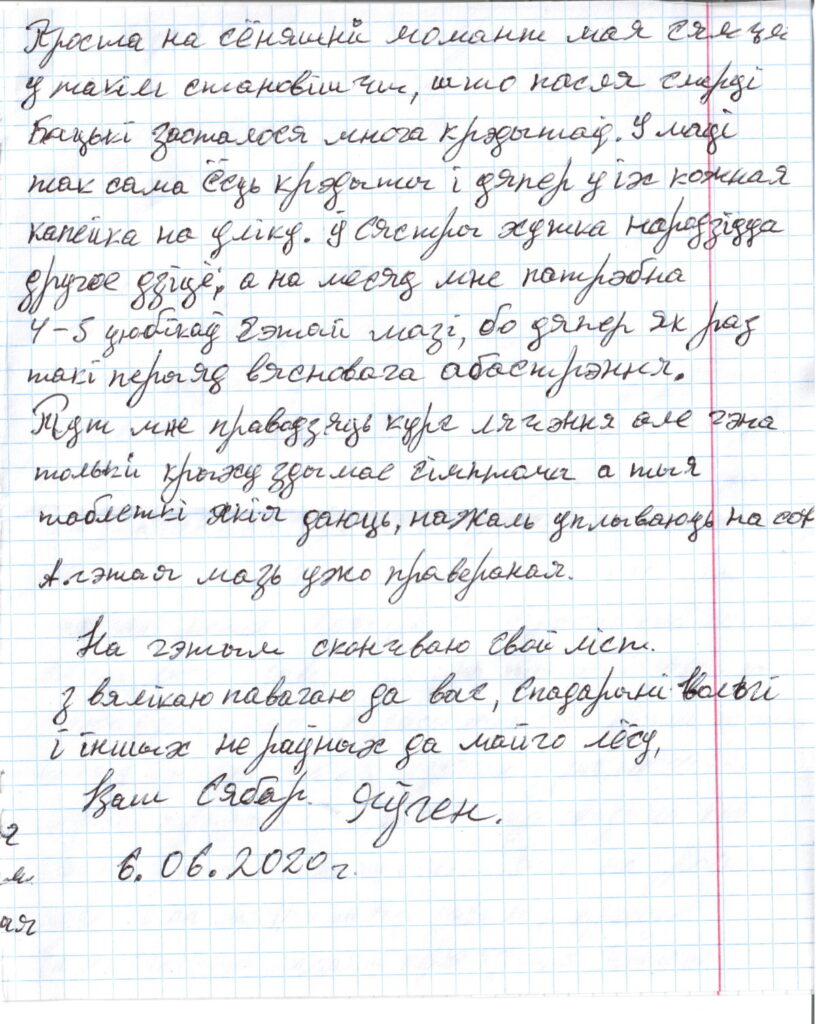 Проста на сёняшні момант мая сямця
у такім становішчы, што пасля смерці
Бацькі засталося многа крэдытаў. У маці
так сама ёсць крэдыты і цяпер у іх кожная
капейка на уліку. У сястры хутка народзіцца
другое дзіце, а на месяц мне патрэбна
4-5 цюбікаў гэтай мазі, бо цяпер як раз
такі перыяд вясновага абастрэння.
Тут мне праводзяць курс лячэння але гэта
толькі крыху здымае сімптомы а тыя
таблеткі якія даюць, нажаль уплываюць на сон
А гэтая мазь ужо правераная.
На гэтым сканчваю свой ліст.
З вялікаю павагаю да вас, спадарыні Вольгі
і іншых нераўных да майго лёсу,
Ваш Сябар. Яўген.
6.06.2020г.
я
ая